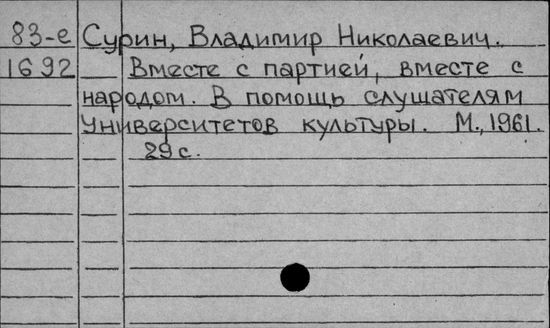 83-е Сурин, Владимир Николаевич.
1692 Вместе с партией, вместе с
народом. В помощь слушателям
университетов культуры. М., 1961.
29 с.